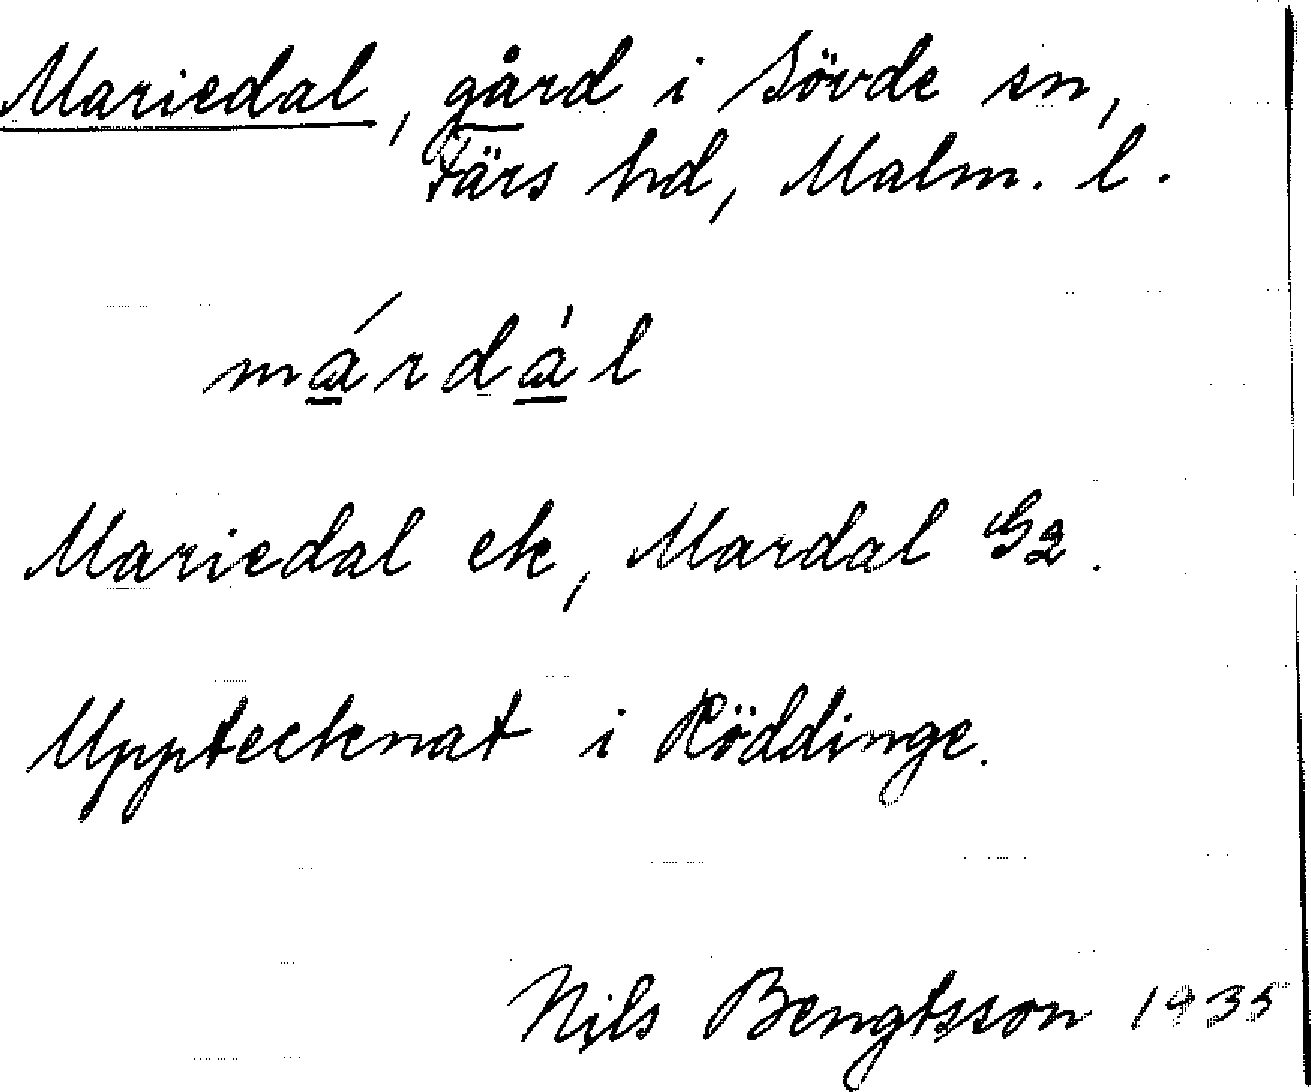 Mariedal, gård i Sövde sn,
Färs hd, Malm. l.
márdál
Mariedal ek, Mardal G2.
Upptecknat i Röddinge.
Nils Bengtsson 1935